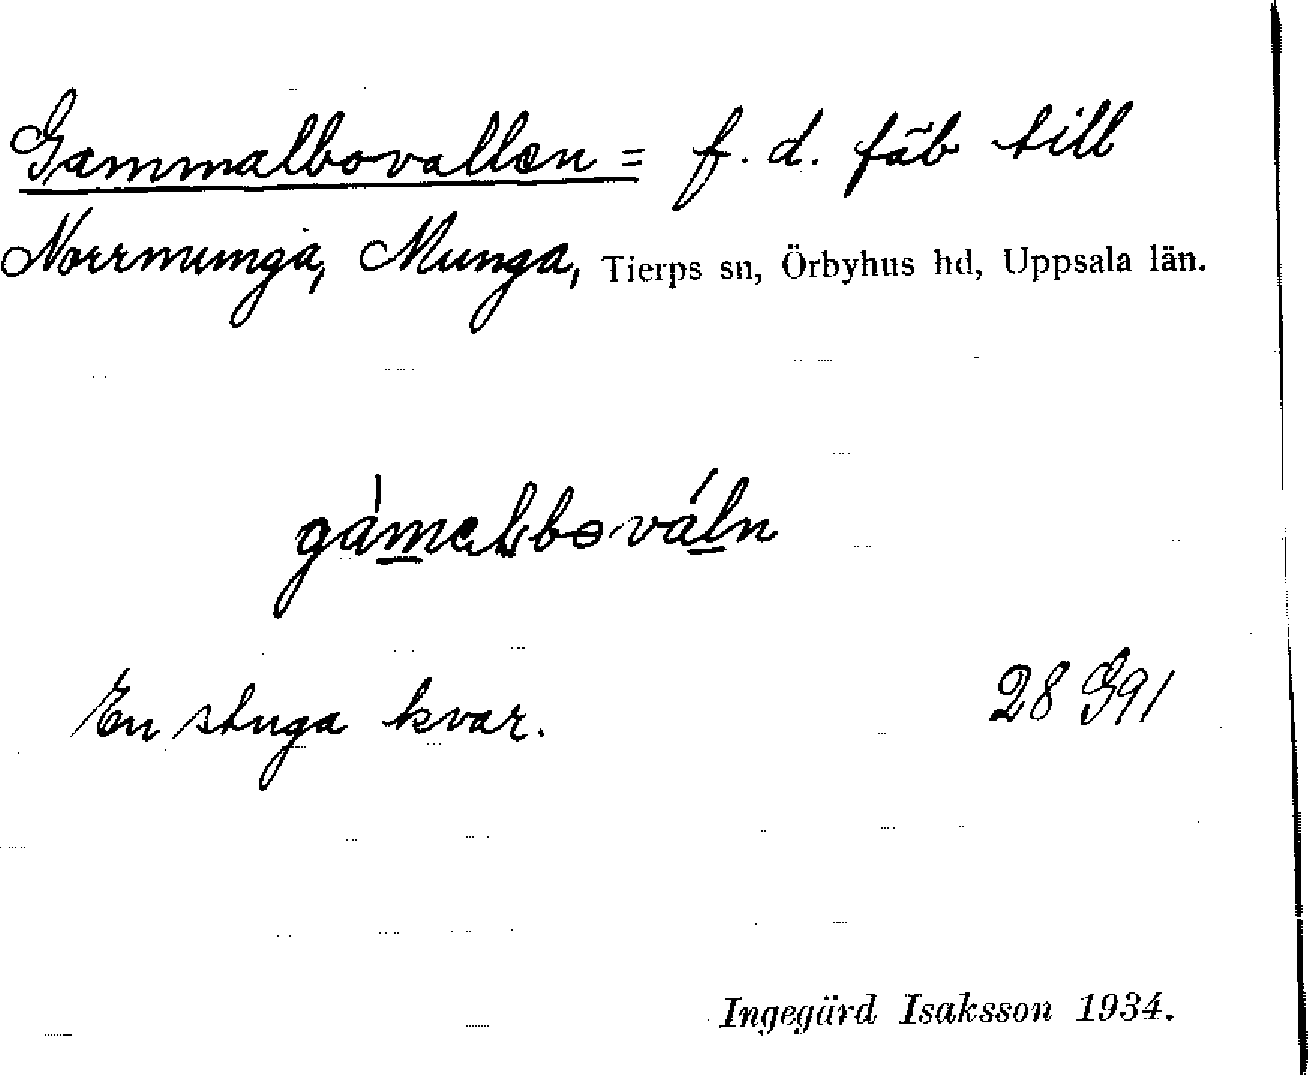 Gammalbovallen = f. d. fäb till
Norrmunga, Munga, Tierps sn, Örbyhus hd, Uppsala län.
En stuga kvar. 28 G91
Ingegärd Isaksson 1934.